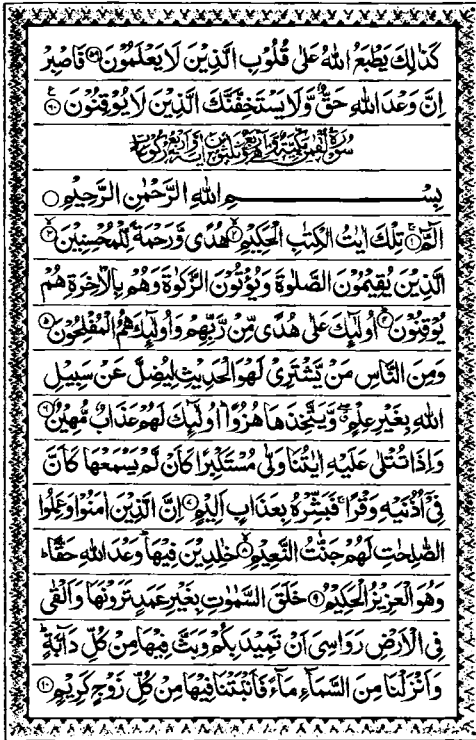 كَذَٰلِكَ يَطْبَعُ اللهُ عَلٰى قُلُوْبِ الَّذِيْنَ لَا يَعْلَمُوْنَ ۵۹ فَاصْبِرْ
اِنَّ وَعْدَ اللهِ حَقٌّ وَّلَا يَسْتَخِفَّنَّكَ الَّذِيْنَ لَا يُوْقِنُوْنَ ۶۰
بِسْمِ اللهِ الرَّحْمٰنِ الرَّحِيْمِ
الٓمّٓ ۱ تِلْكَ اٰيٰتُ الْكِتٰبِ الْحَكِيْمِ ۲ هُدًى وَّرَحْمَةً لِّلْمُحْسِنِيْنَ ۳
الَّذِيْنَ يُقِيْمُوْنَ الصَّلٰوةَ وَيُؤْتُوْنَ الزَّكٰوةَ وَهُمْ بِالْاٰخِرَةِ هُمْ
يُوْقِنُوْنَ ۴ اُولٰٓئِكَ عَلٰى هُدًى مِّنْ رَّبِّهِمْ وَاُولٰٓئِكَ هُمُ الْمُفْلِحُوْنَ ۵
وَمِنَ النَّاسِ مَنْ يَّشْتَرِيْ لَهْوَ الْحَدِيْثِ لِيُضِلَّ عَنْ سَبِيْلِ
اللهِ بِغَيْرِ عِلْمٍ وَّيَتَّخِذَهَا هُزُوًا اُولٰٓئِكَ لَهُمْ عَذَابٌ مُّهِيْنٌ ۶
وَاِذَا تُتْلٰى عَلَيْهِ اٰيٰتُنَا وَلّٰى مُسْتَكْبِرًا كَاَنْ لَّمْ يَسْمَعْهَا كَاَنَّ
فِيْٓ اُذُنَيْهِ وَقْرًا فَبَشِّرْهُ بِعَذَابٍ اَلِيْمٍ ۷ اِنَّ الَّذِيْنَ اٰمَنُوْا وَعَمِلُوا
الصّٰلِحٰتِ لَهُمْ جَنّٰتُ النَّعِيْمِ ۸ خٰلِدِيْنَ فِيْهَا وَعْدَ اللهِ حَقًّا
وَهُوَ الْعَزِيْزُ الْحَكِيْمُ ۹ خَلَقَ السَّمٰوٰتِ بِغَيْرِ عَمَدٍ تَرَوْنَهَا وَاَلْقٰى
فِي الْاَرْضِ رَوَاسِيَ اَنْ تَمِيْدَ بِكُمْ وَبَثَّ فِيْهَا مِنْ كُلِّ دَآبَّةٍ
وَاَنْزَلْنَا مِنَ السَّمَآءِ مَآءً فَاَنْۢبَتْنَا فِيْهَا مِنْ كُلِّ زَوْجٍ كَرِيْمٍ ۱۰